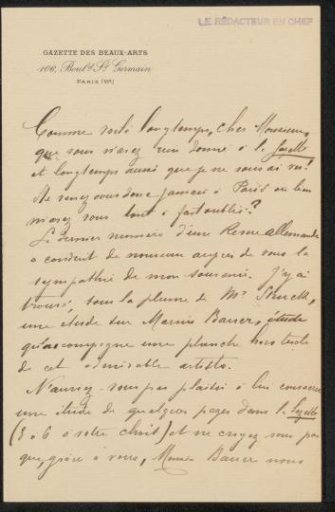 LE RÉDACTEUR EN CHEF
GAZETTE DES BEAUX-ARTS
106, Boulᵈ Sᵗ Germain
PARIS (VIᵉ)
Comme voilà longtemps, cher Monsieur,
que vous n'avez rien donné à la Gazette
et longtemps aussi que je ne vous ai vu!
Ne venez vous donc jamais à Paris ou bien
m'avez vous tout à fait oublié?
Le dernier numéro d'une Revue allemande
a conduit de nouveau auprès de vous la
sympathie de mon souvenir. J'y ai
trouvé, sous la plume de Mʳ
une étude sur Marius Bauer, étude
qu'accompagne une planche hors texte
de cet admirable artiste.
N'auriez-vous pas plaisir à lui consacrer
une étude de quelques pages dans la Gazette
(5 à 6 à votre choix) et ne croyez vous pas
que, grâce à vous, Marius Bauer nous